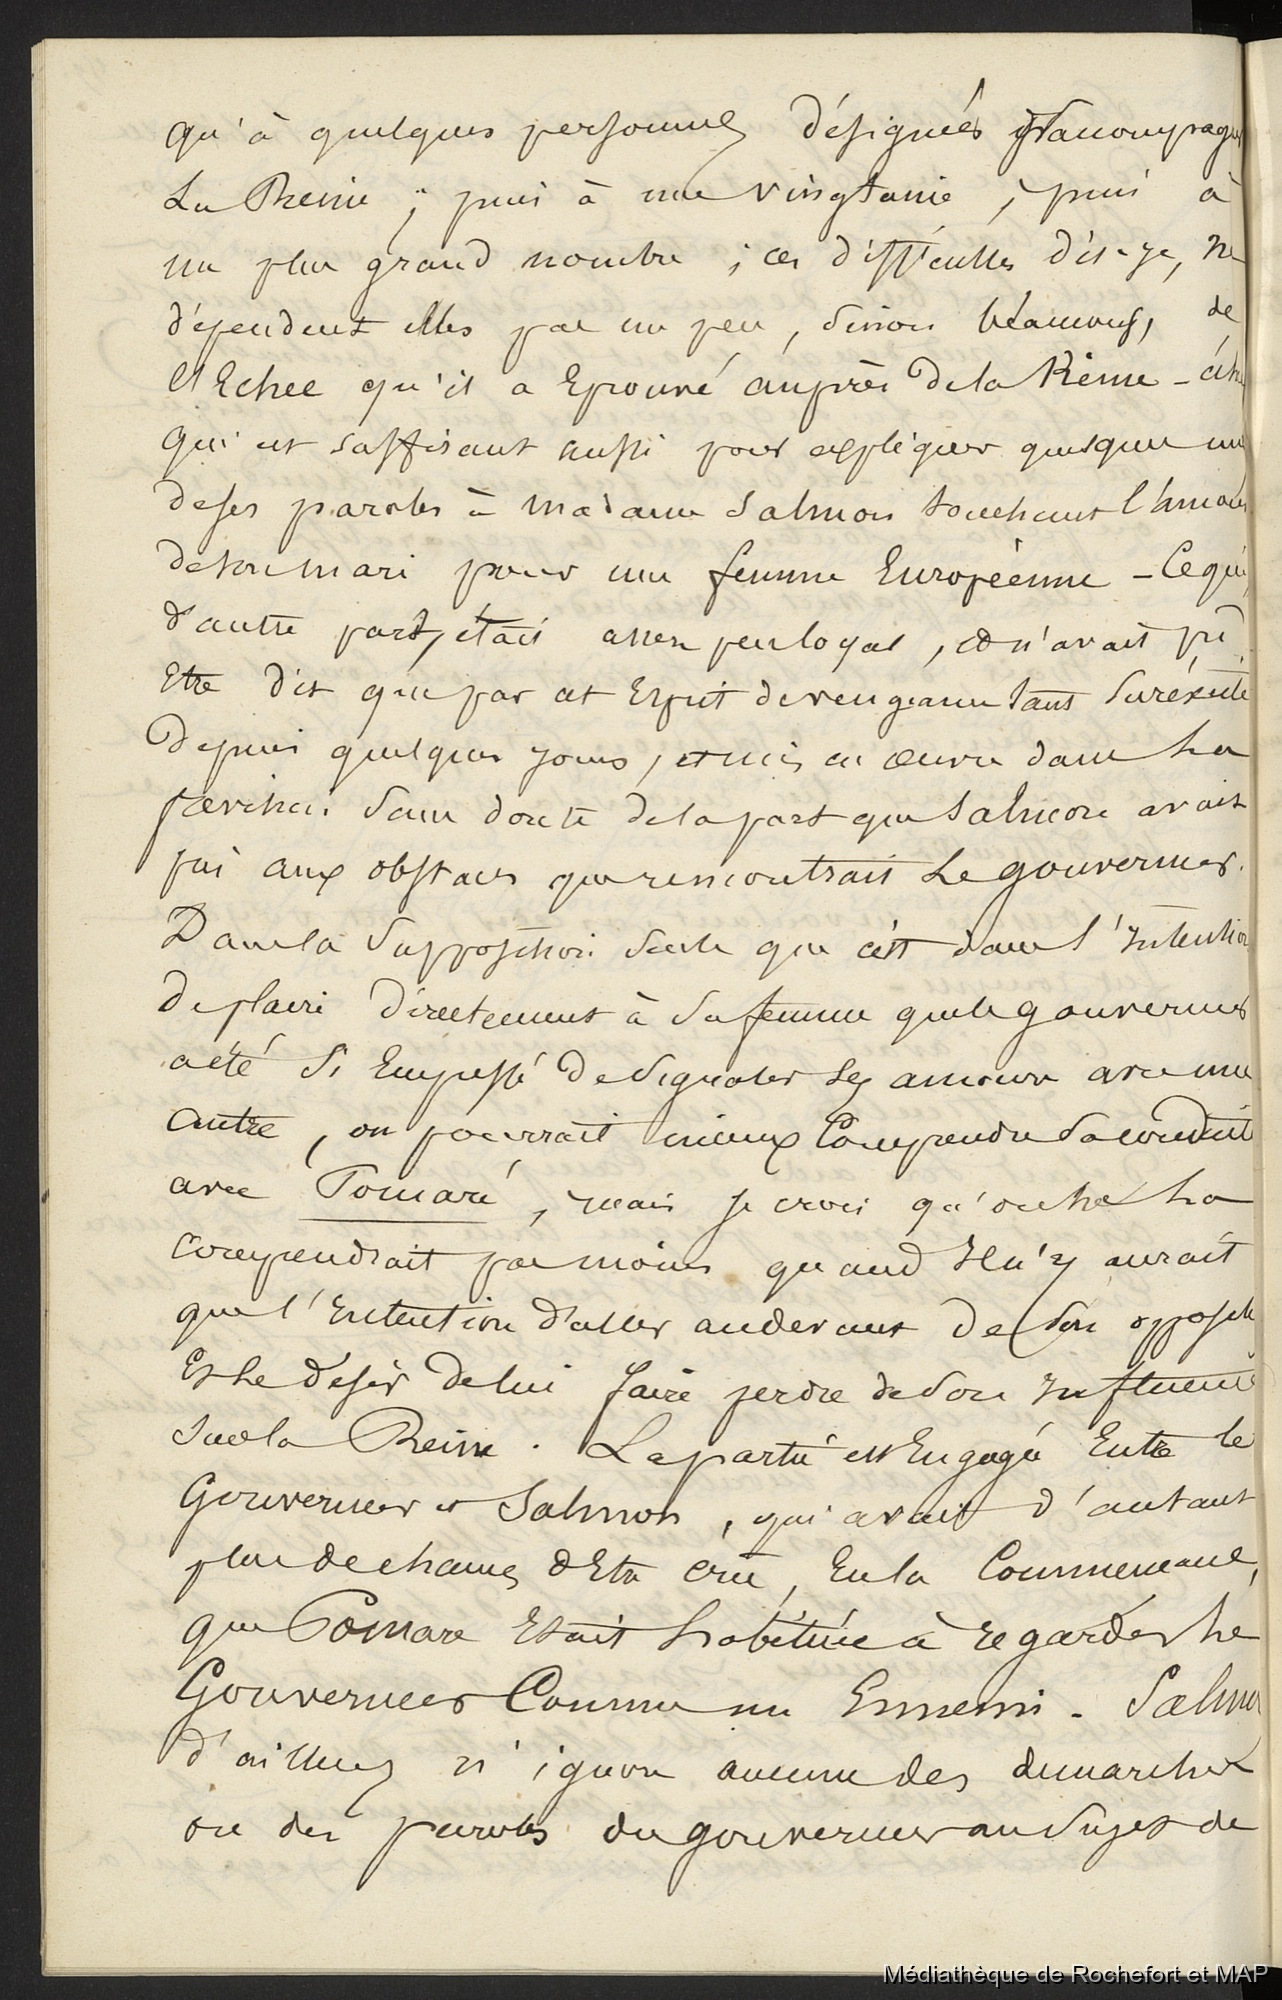 qu'à quelques personnes désignées d'accompagner
La Reine ; puis à une vingtaine ; puis à
un plus grand nombre ; ces difficultés dis-je, ne
dépendent elles pas un peu, sinon béaucoup, de
l'Echec qu'il a Eprouvé auprès de la Reine -
qui est suffisant aussi pour expliquer quelques unes
de ses paroles à madame Salmon touchant l'amour
de son mari pour une femme Européenne - Ce qui,
d'autre part, était assez peu loyal, et n'avait pu
Etre dit que par cet Esprit de vengeance tant Surexcité
Depuis quelques jours, et mis en œuvre dans la
prévision sans doute de la part que Salmon avait
pris aux obstacles que rencontrait Le gouverneur.
Dans la Supposition Seule que c'est dans l'Intention
De plaire Directement à Sa femme que le gouverneur
a été Si Empressé De Signaler Ses amours avec une
autre, on pourrait mieux Comprendre Sa conduite
avec Pomaré, mais je crois qu'on ne La
comprendrait pas moins quand Il n'y aurait
que l'Intention d'aller au devant De Son opposition
Et Le désir De lui faire perdre de Son Influence
Sur la Reine. La partie est Engagée Entre le
Gouverneur et Salmon, qui avait d'autant
plus de chances d'Etre crû, En la Commençant,
que Pomare Etait habituée à regarder Le
Gouverneur Comme un Ennemi - Salmon
d'ailleurs n'ignore aucune des demarches
ou des paroles du gouverneur au Sujet de
Médiathèque de Rochefort et MAP